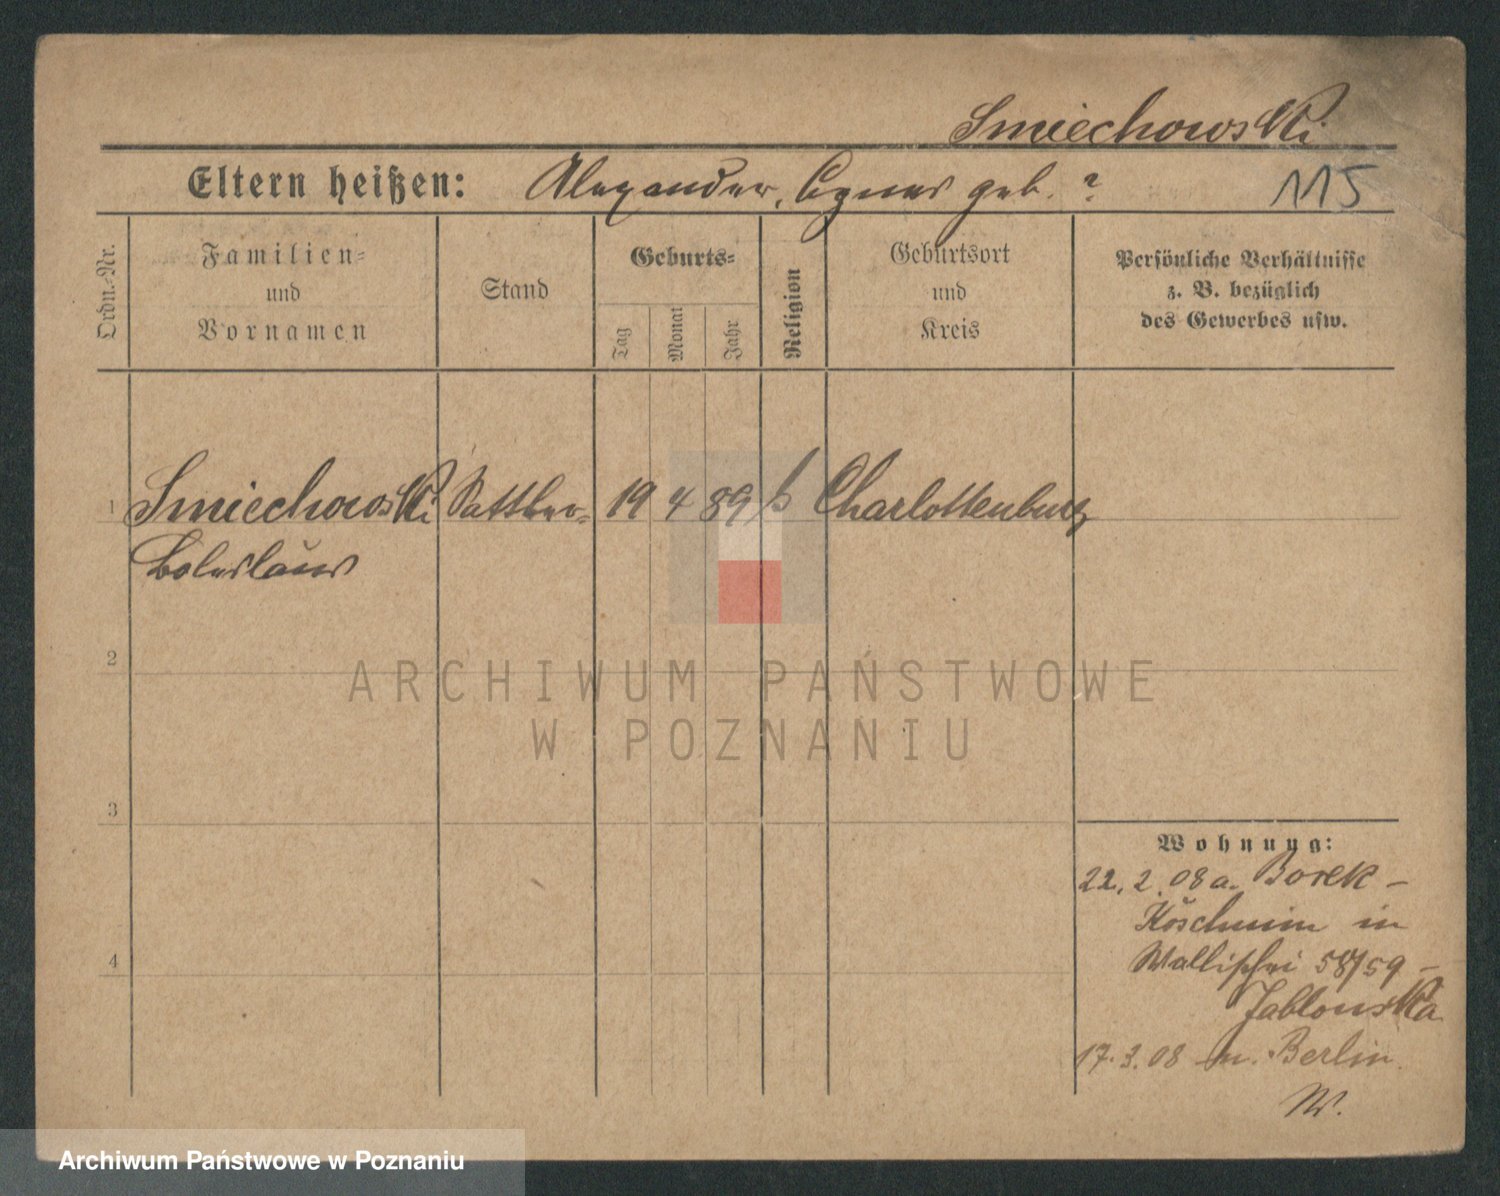 Smiechowski
Eltern heißen: Alexander, Agnes geb. ?
115
Ordn.-Nr.
Familien-
und
Vornamen
Stand
Geburts-
Tag
Monat
Jahr
Religion
Geburtsort
und
Kreis
Persönliche Verhältnisse
z. B. bezüglich
des Gewerbes usw.
1 Smiechowski Sattler- 19 4 89 k Charlottenburg
Boleslaus
2
3
4
Wohnung:
22. 2. 08 a. Borek -
Koschmin in
Wallischei 58/59 -
Jablonska
17. 3. 08 n. Berlin
W.
ARCHIWUM PAŃSTWOWE
W POZNANIU
Archiwum Państwowe w Poznaniu